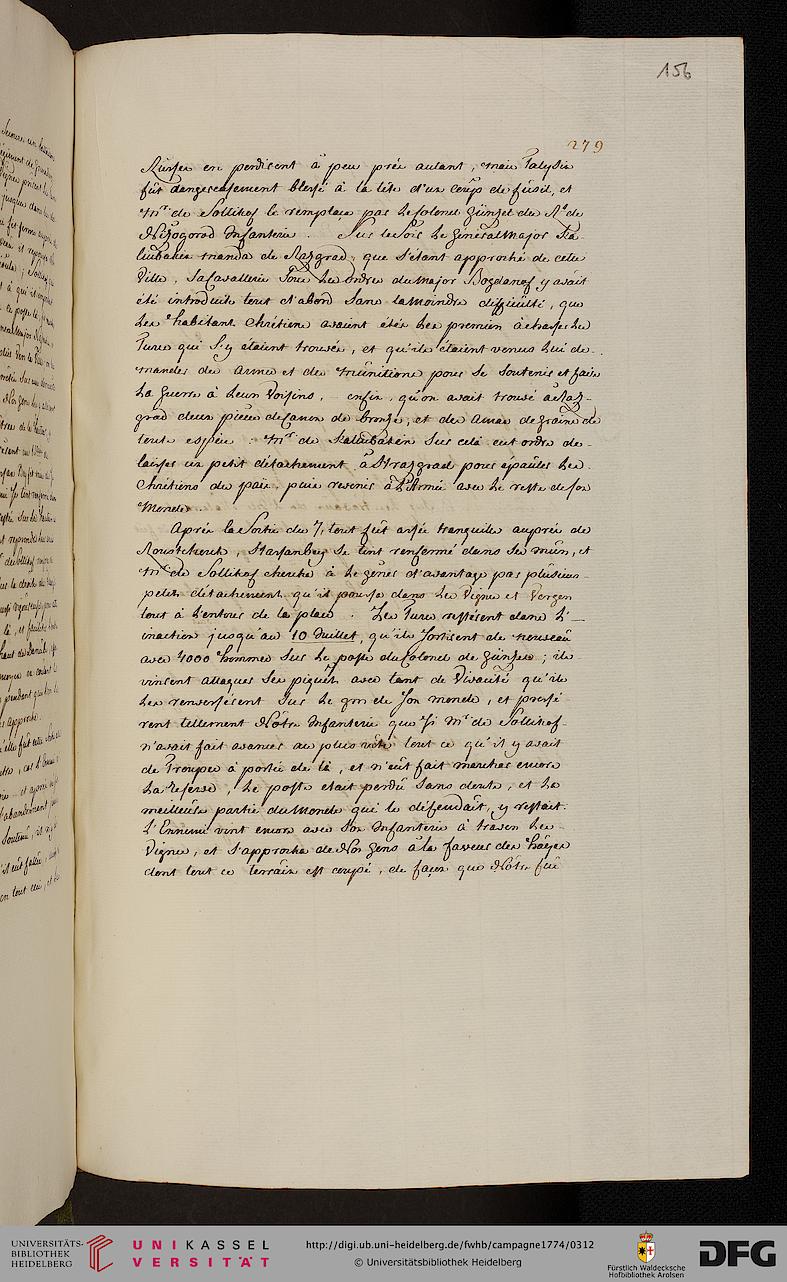 156
279
Russes en perdirent à peu près autant, mais Talysin
fût dangereusement blessé à la tête d'un coup de fusil, et
Mr de Soltikof le remplaça par le Colonel Günzel du Rt de
Nizogorod Infanterie. Sur le soir le général Major Ka-
leubakin manda de Razgrad, que s'étant approché de cette
Ville, sa Cavallerie sous les ordres du Major Bogdanof y avait
été introduite tout d'abord sans la moindre difficulté, que
les habitans Chrétiens avaient étés les premiers à chasser les
Turcs qui s'y étaient trouvés, et qu'ils étaient venus lui de-
mander des armes et des munitions pour se soutenir et faire
la guerre à leurs Voisins, enfin, qu'on avait trouvé à Raz-
grad deux pièces de Canon de bronze, et des amas de grains de
toute espèce: Mr de Kaleubakin sur celà eut ordre de
laisser un petit détachement à Strazgrad pour épauler les
Chrétiens du païs, puis revenir à l'Armée avec le reste de son
Monde.
Après la Sortie du 7, tout fût assés tranquille auprès de
Roustchouck, Hassanbey se tint renfermé dans ses murs, et
Mr de Soltikof chercha à le gêner d'avantage par plusieurs
petits détachements qu'il poussa dans les Vignes et Vergers
tout à l'entour de la place. Les Turcs restèrent dans l'-
inaction jusqu'au 10 Juillet, qu'ils sortirent de nouveau
avec 4000 hommes sur le poste du Colonel de Günzel; ils
vinrent attaquer ses piquets avec tant de Vivacité qu'ils
les renversèrent sur le gros de son monde, et pressè-
rent tellement Nôtre Infanterie que si Mr de Soltikof
n'avait fait avancer au plus vite tout ce qu'il y avait
de Troupes à portée de là, et n'eût fait marcher encore
la Réserve, le poste etait perdû sans doute, et la
meilleure partie du Monde qui le défendait, y restait.
L'Ennemi vint encore avec son Infanterie à travers les
Vignes, et s'approcha de Nos gens à la faveur des hayes
dont tout ce terrain est coupé, de façon que Nôtre feu
UNIVERSITÄTS-
BIBLIOTHEK
HEIDELBERG
UNIKASSEL
VERSITÄT
http://digi.ub.uni-heidelberg.de/fwhb/campagne1774/0312
© Universitätsbibliothek Heidelberg
Fürstlich Waldecksche
Hofbibliothek Arolsen
DFG